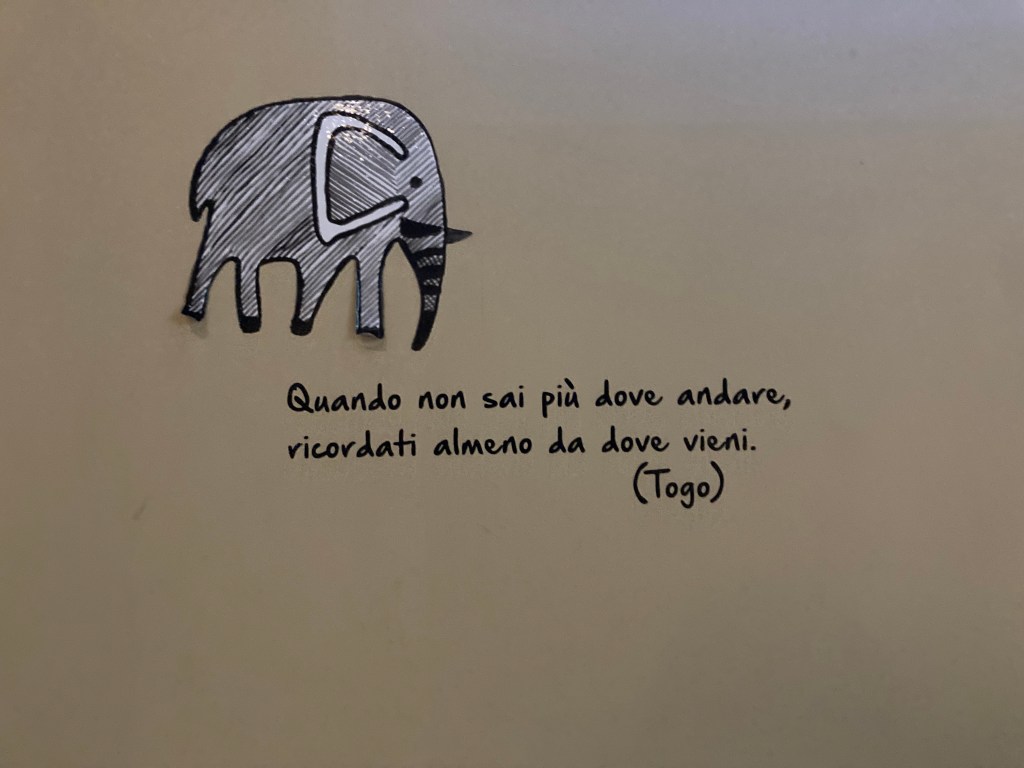 Quando non sai più dove andare,
ricordati almeno da dove vieni.
(Togo)